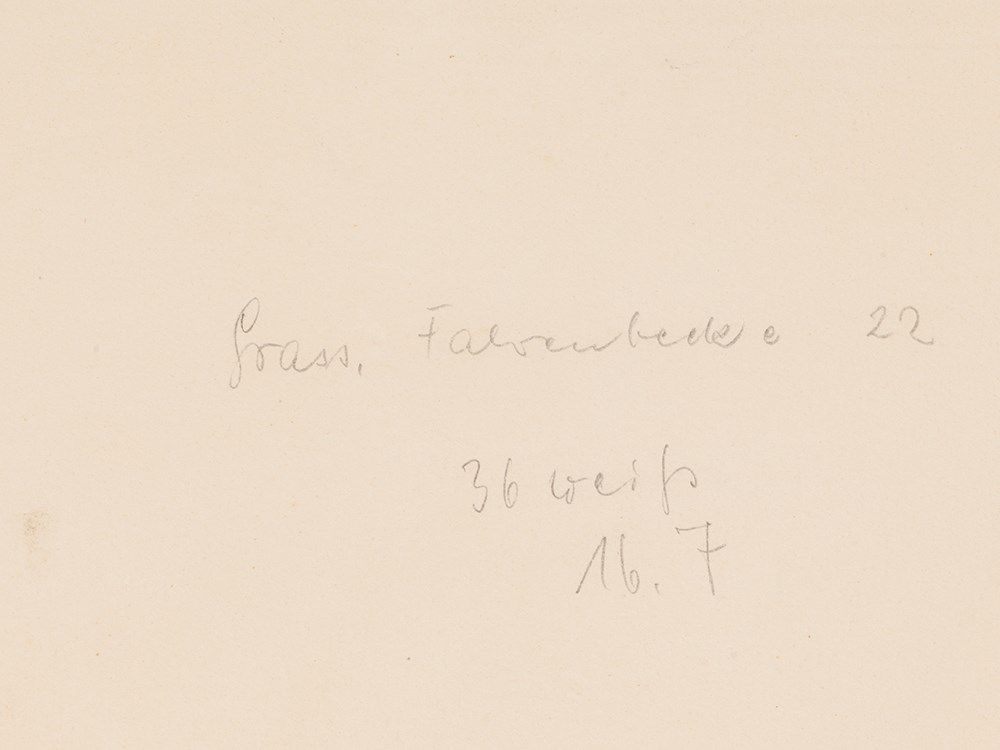 Grass, Falvenbecke 22
36 weiß
16.7